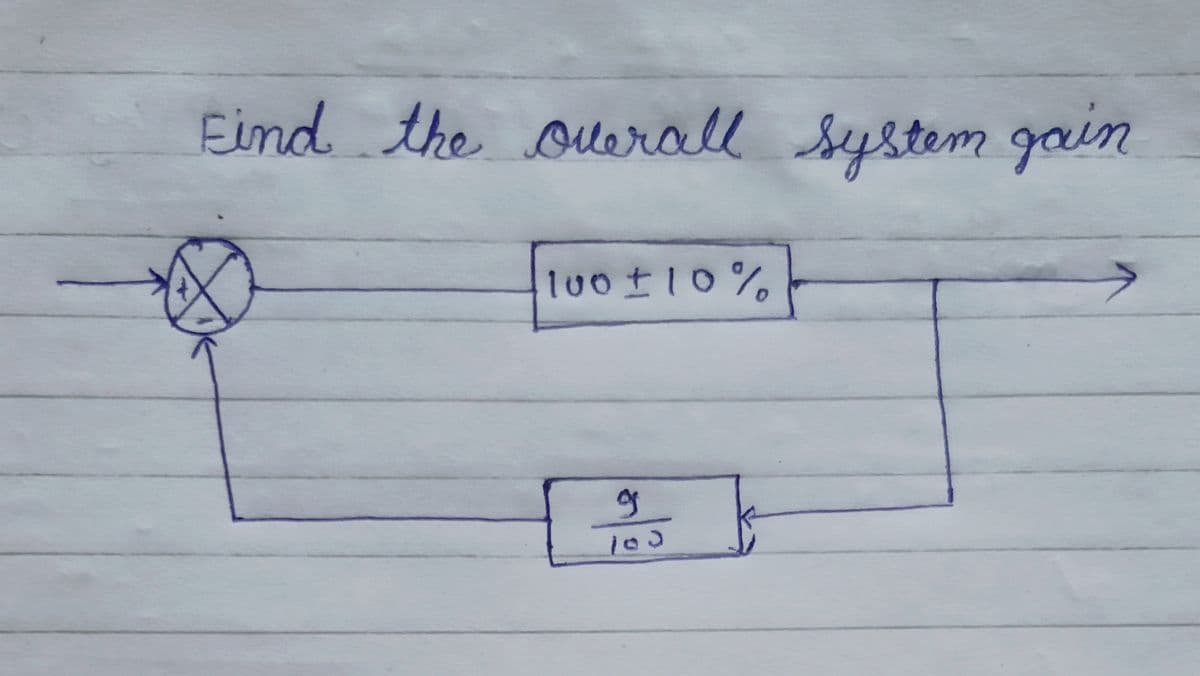 Find the overall system gain
+
100 ± 10 %
-
9
100